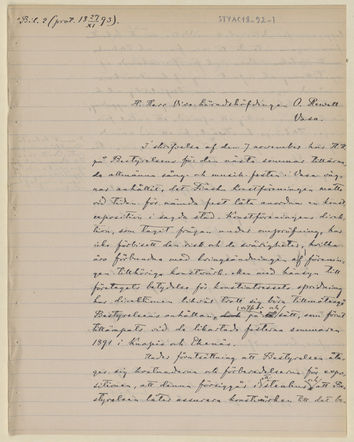 Bil. 2 (prot. 18 27/XI 93).
STYAC18-92-1
H. Herr Vice häradshöfdingen O. Rewell
Vasa.
I skrifvelse af den 7 november har H.H.
på Bestyrelsens för den nästa sommar tillärnade
allmänna sång- och musik festen i Vasa vägnar
anhållit, det Finska konstföreningen måtte
vid tiden för nämnda fest låta anordna en konst
exposition i sagda stad. Konstföreningens direktion,
som tagit frågan under ompröfning, har
icke förbisett den risk och de svårigheter, hvilka
äro förbundna med kringsändningen af föreningen
tillhöriga konstverk, men med hänsyn till
företagets betydelse för konstintressets spridning
har direktionen likväl trott sig böra tillmötesgå
Bestyrelsens anhållan, på sätt, som förut
tillämpats vid de liknande festerna sommaren
1891 i Kuopio och Ekenäs.
Under förutsättning att Bestyrelsen åtager
sig kostnaderna och förberedelserna för expositionen,
att denna försiggår i stenhus och Bestyrelsen
låter assurera konstverken till det be-